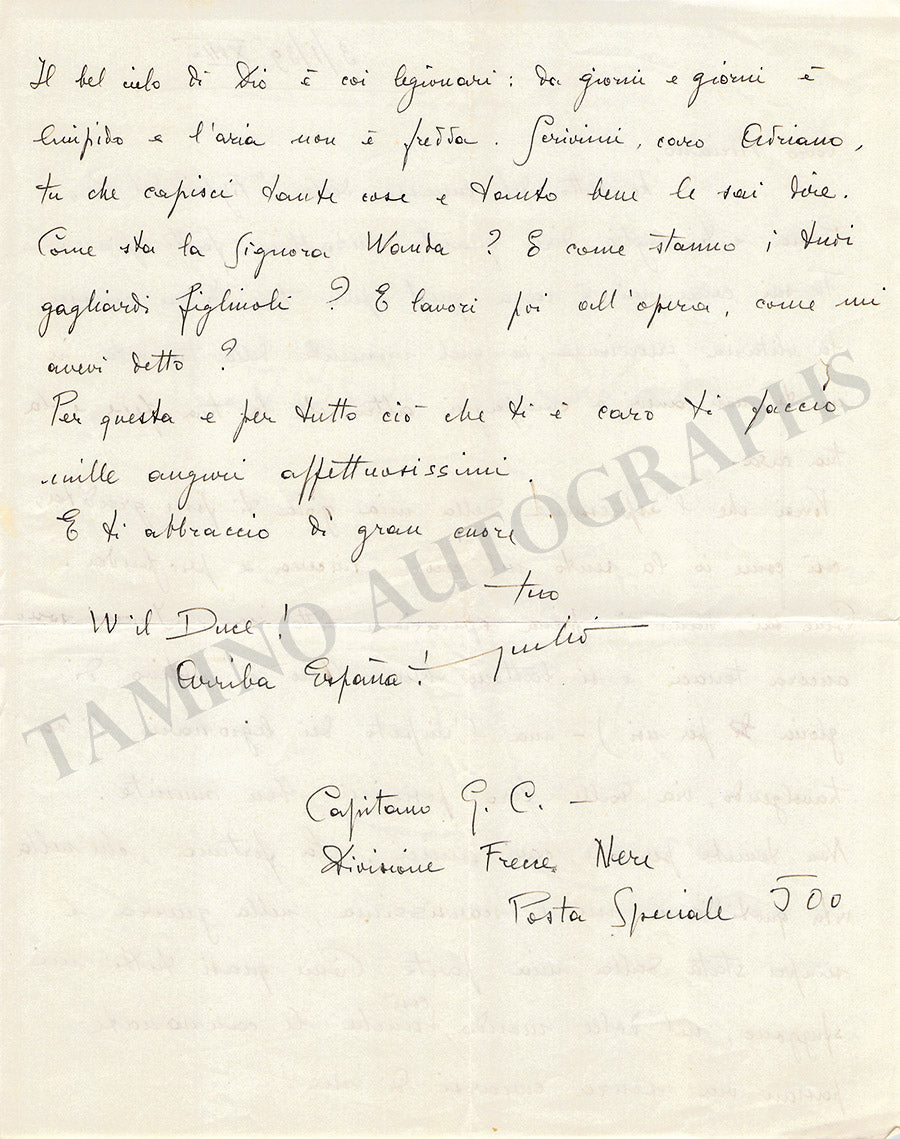 Il bel cielo di Dio è coi legionari: da giorni e giorni è
limpido e l'aria non è fredda. Scrivimi, caro Adriano,
tu che capisci tante cose e tanto bene le sai dire.
Come sta la Signora Wanda? E come stanno i tuoi
gagliardi figliuoli? E lavori poi all'opera, come mi
avevi detto?
Per questa e per tutto ciò che ti è caro ti faccio
mille auguri affettuosissimi.
E ti abbraccio di gran cuore
tuo
W il Duce!
Arriba España!
Capitano G. C. -
Divisione Frecce Nere
Posta Speciale 500
TAMINO AUTOGRAPHS